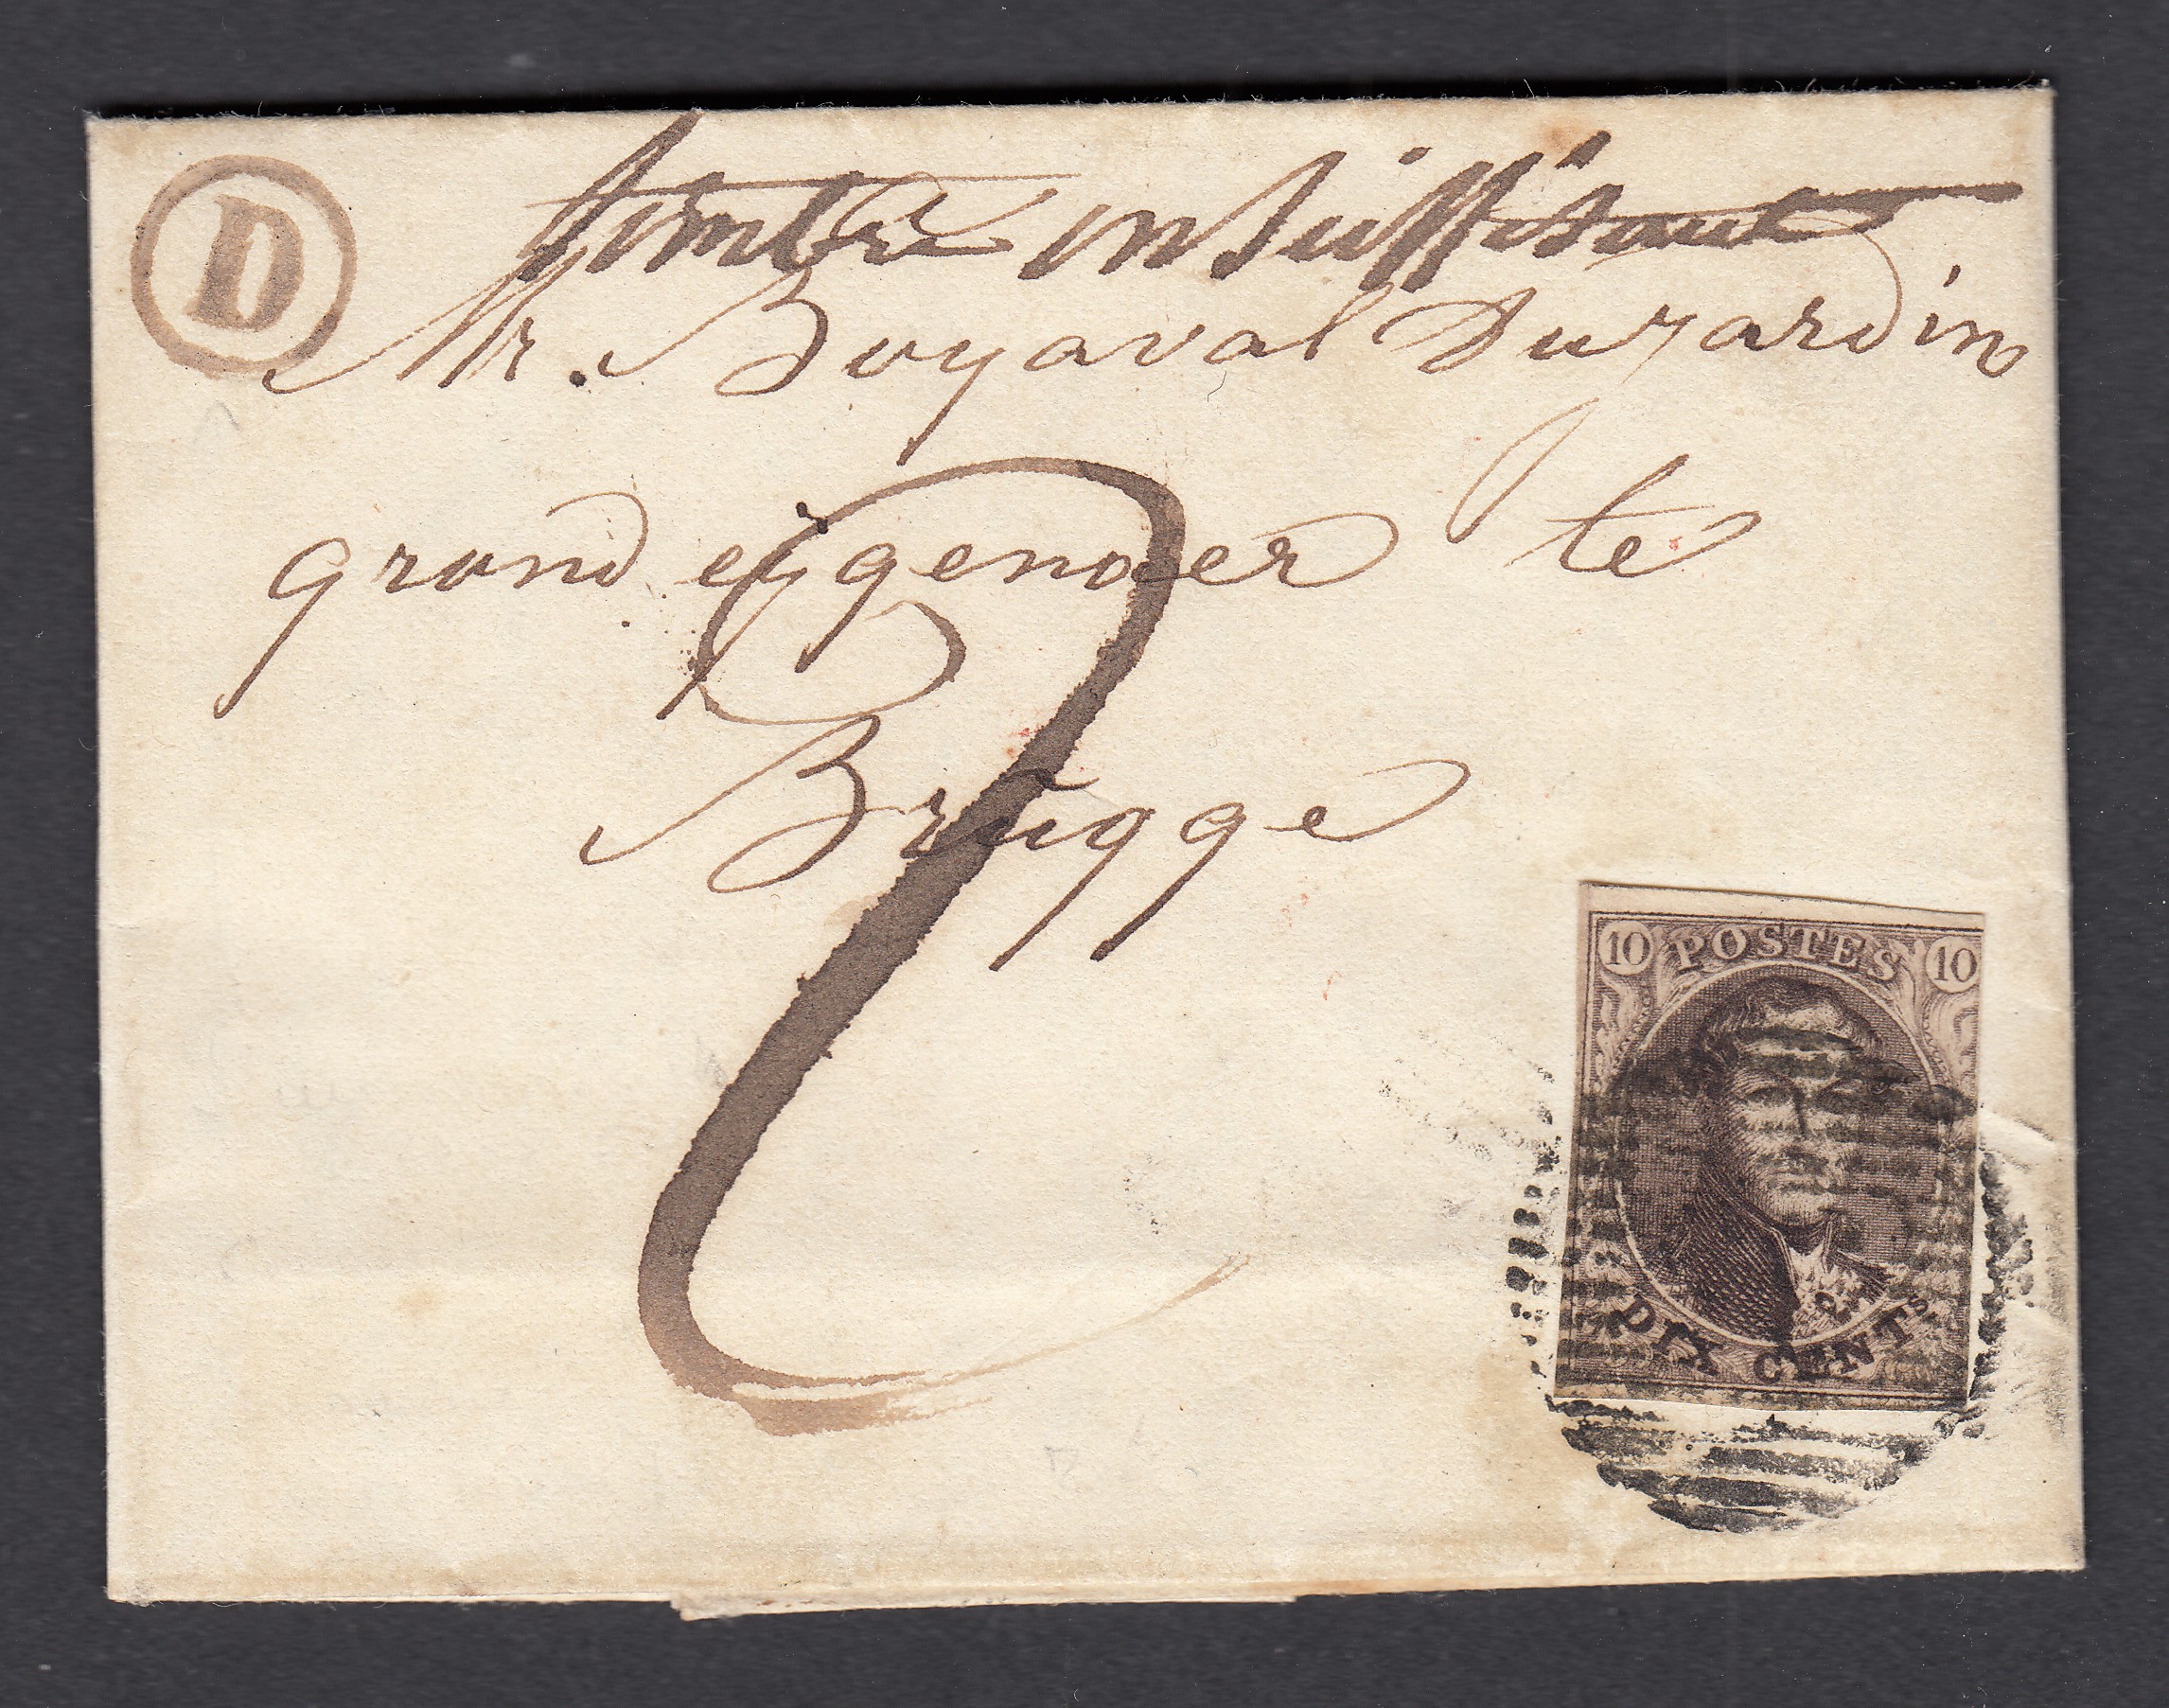 D
timbre insuffisant
Mr. Boyaval Dujardin
grond eijgenaer te
Brugge
2
10 POSTES 10
DIX CENTS.